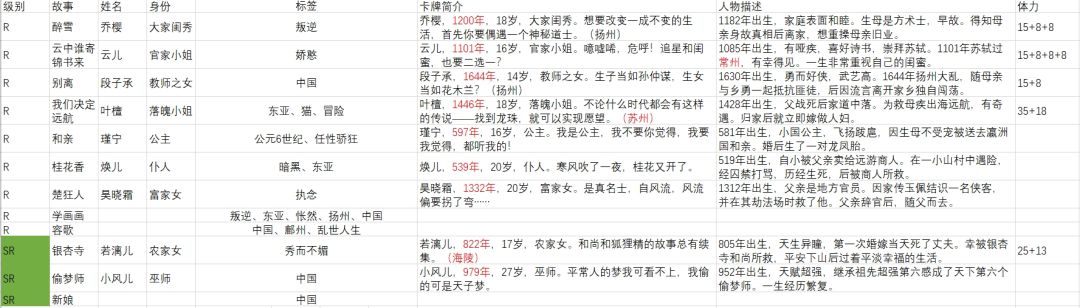 级别 故事 姓名 身份 标签 卡牌简介 人物描述 体力
R 醉雪 乔樱 大家闺秀 叛逆 乔樱，1200年，18岁，大家闺秀。想要改变一成不变的生活，首先你要偶遇一个神秘道士。（扬州） 1182年出生，家庭表面和睦。生母是方术士，早故。得知母亲身故真相后离家，想重操母亲旧业。 15+8+8
R 云中谁寄锦书来 云儿 官家小姐 娇憨 云儿，1101年，16岁，官家小姐。噫嘘唏，危呼！追星和闺蜜，也要二选一？ 1085年出生，有哑疾，喜好诗书，崇拜苏轼。1101年苏轼过常州，有幸得见。一生非常重视自己的闺蜜。 15+8+8+8
R 别离 段子承 教师之女 中国 段子承，1644年，14岁，教师之女。生子当如孙仲谋，生女当如花木兰？（扬州） 1630年出生，勇而好侠，武艺高。1644年扬州大乱，随母亲与乡勇一起抵抗匪徒，后因流言离开家乡独自闯荡。 15+8
R 我们决定远航 叶檀 落魄小姐 东亚、猫、冒险 叶檀，1446年，18岁，落魄小姐。不论什么时代都会有这样的传说——找到龙珠，就可以实现愿望。（苏州） 1428年出生，父战死后家道中落。为救母疾出海远航，有奇遇。归家后就立即嫁做人妇。 35+18
R 和亲 瑾宁 公主 公元6世纪、任性骄狂 瑾宁，597年，16岁，公主。我是公主，我不要你觉得，我要我觉得，都听我的！ 581年出生，小国公主，飞扬跋扈，因生母不受宠被送去瀛洲国和亲。婚后生了一对龙凤胎。
R 桂花香 焕儿 仆人 暗黑、东亚 焕儿，539年，20岁，仆人。寒风吹了一夜，桂花又开了。 519年出生，自小被父亲卖给远游商人。在一小山村中遇险，经囚禁打骂，历经生死，后被商人所救。
R 楚狂人 吴晓霜 富家女 执念 吴晓霜，1332年，20岁，富家女。是真名士，自风流，风流偏要拐了弯…… 1312年出生，父亲是地方官员。因家传玉佩结识一名侠客，并在其劫法场时救了他。父亲辞官后，随父而去。
R 学画画 叛逆、东亚、怅然、扬州、中国
R 容歌 中国、鄘州、乱世人生
SR 银杏寺 若漓儿 农家女 秀而不媚 若漓儿，822年，17岁，农家女。和尚和狐狸精的故事总有续集。（海陵） 805年出生，天生异瞳，第一次婚嫁当天死了丈夫。幸被银杏寺和尚所救，平安下山后过着平淡幸福的生活。 25+13
SR 偷梦师 小风儿 巫师 中国 小风儿，979年，27岁，巫师。平常人的梦我可看不上，我偷的可是天子梦。 952年出生，天赋超强，继承祖先超强第六感成了天下第六个偷梦师。一生经历繁复。
SR 新娘 中国